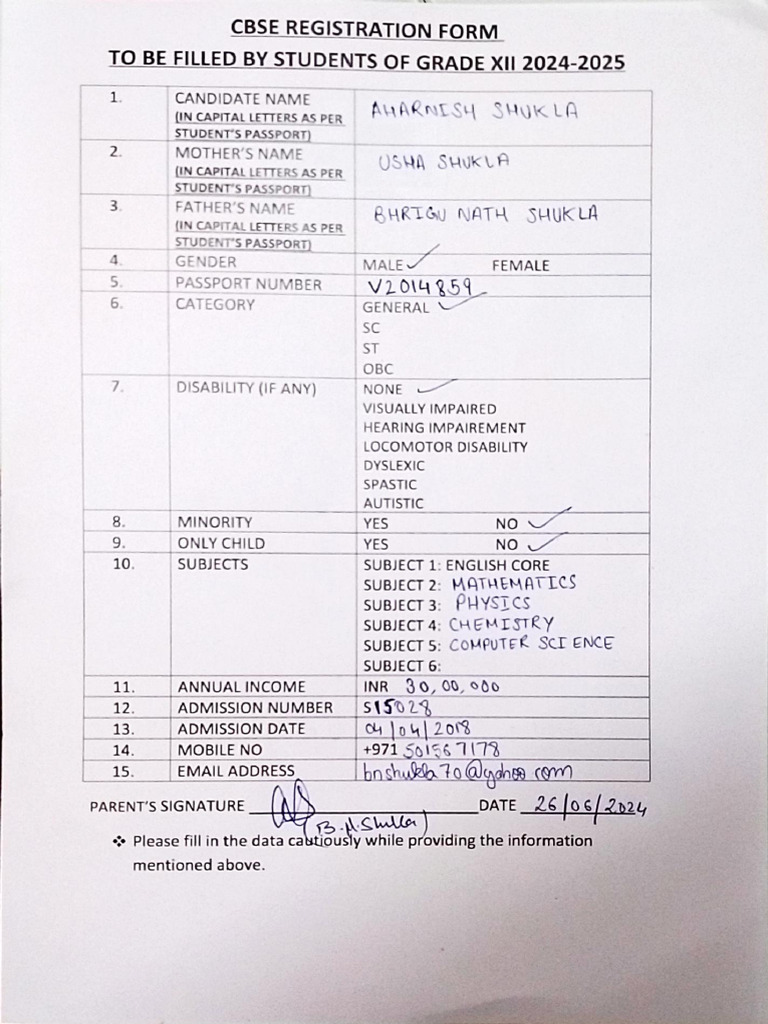 CBSE REGISTRATION FORM
TO BE FILLED BY STUDENTS OF GRADE XII 2024-2025
1. CANDIDATE NAME (IN CAPITAL LETTERS AS PER STUDENT'S PASSPORT) AHARNISH SHUKLA
2. MOTHER'S NAME (IN CAPITAL LETTERS AS PER STUDENT'S PASSPORT) USHA SHUKLA
3. FATHER'S NAME (IN CAPITAL LETTERS AS PER STUDENT'S PASSPORT) BHRIGU NATH SHUKLA
4. GENDER MALE ✓ FEMALE
5. PASSPORT NUMBER V2014859
6. CATEGORY GENERAL ✓
SC
ST
OBC
7. DISABILITY (IF ANY) NONE ✓
VISUALLY IMPAIRED
HEARING IMPAIREMENT
LOCOMOTOR DISABILITY
DYSLEXIC
SPASTIC
AUTISTIC
8. MINORITY YES NO ✓
9. ONLY CHILD YES NO ✓
10. SUBJECTS SUBJECT 1: ENGLISH CORE
SUBJECT 2: MATHEMATICS
SUBJECT 3: PHYSICS
SUBJECT 4: CHEMISTRY
SUBJECT 5: COMPUTER SCIENCE
SUBJECT 6:
11. ANNUAL INCOME INR 30,00,000
12. ADMISSION NUMBER S15028
13. ADMISSION DATE 04/04/2018
14. MOBILE NO +971 501567178
15. EMAIL ADDRESS bnshukla70@yahoo.com
PARENT'S SIGNATURE DATE 26/06/2024
(B.N.Shukla)
❖ Please fill in the data cautiously while providing the information
mentioned above.